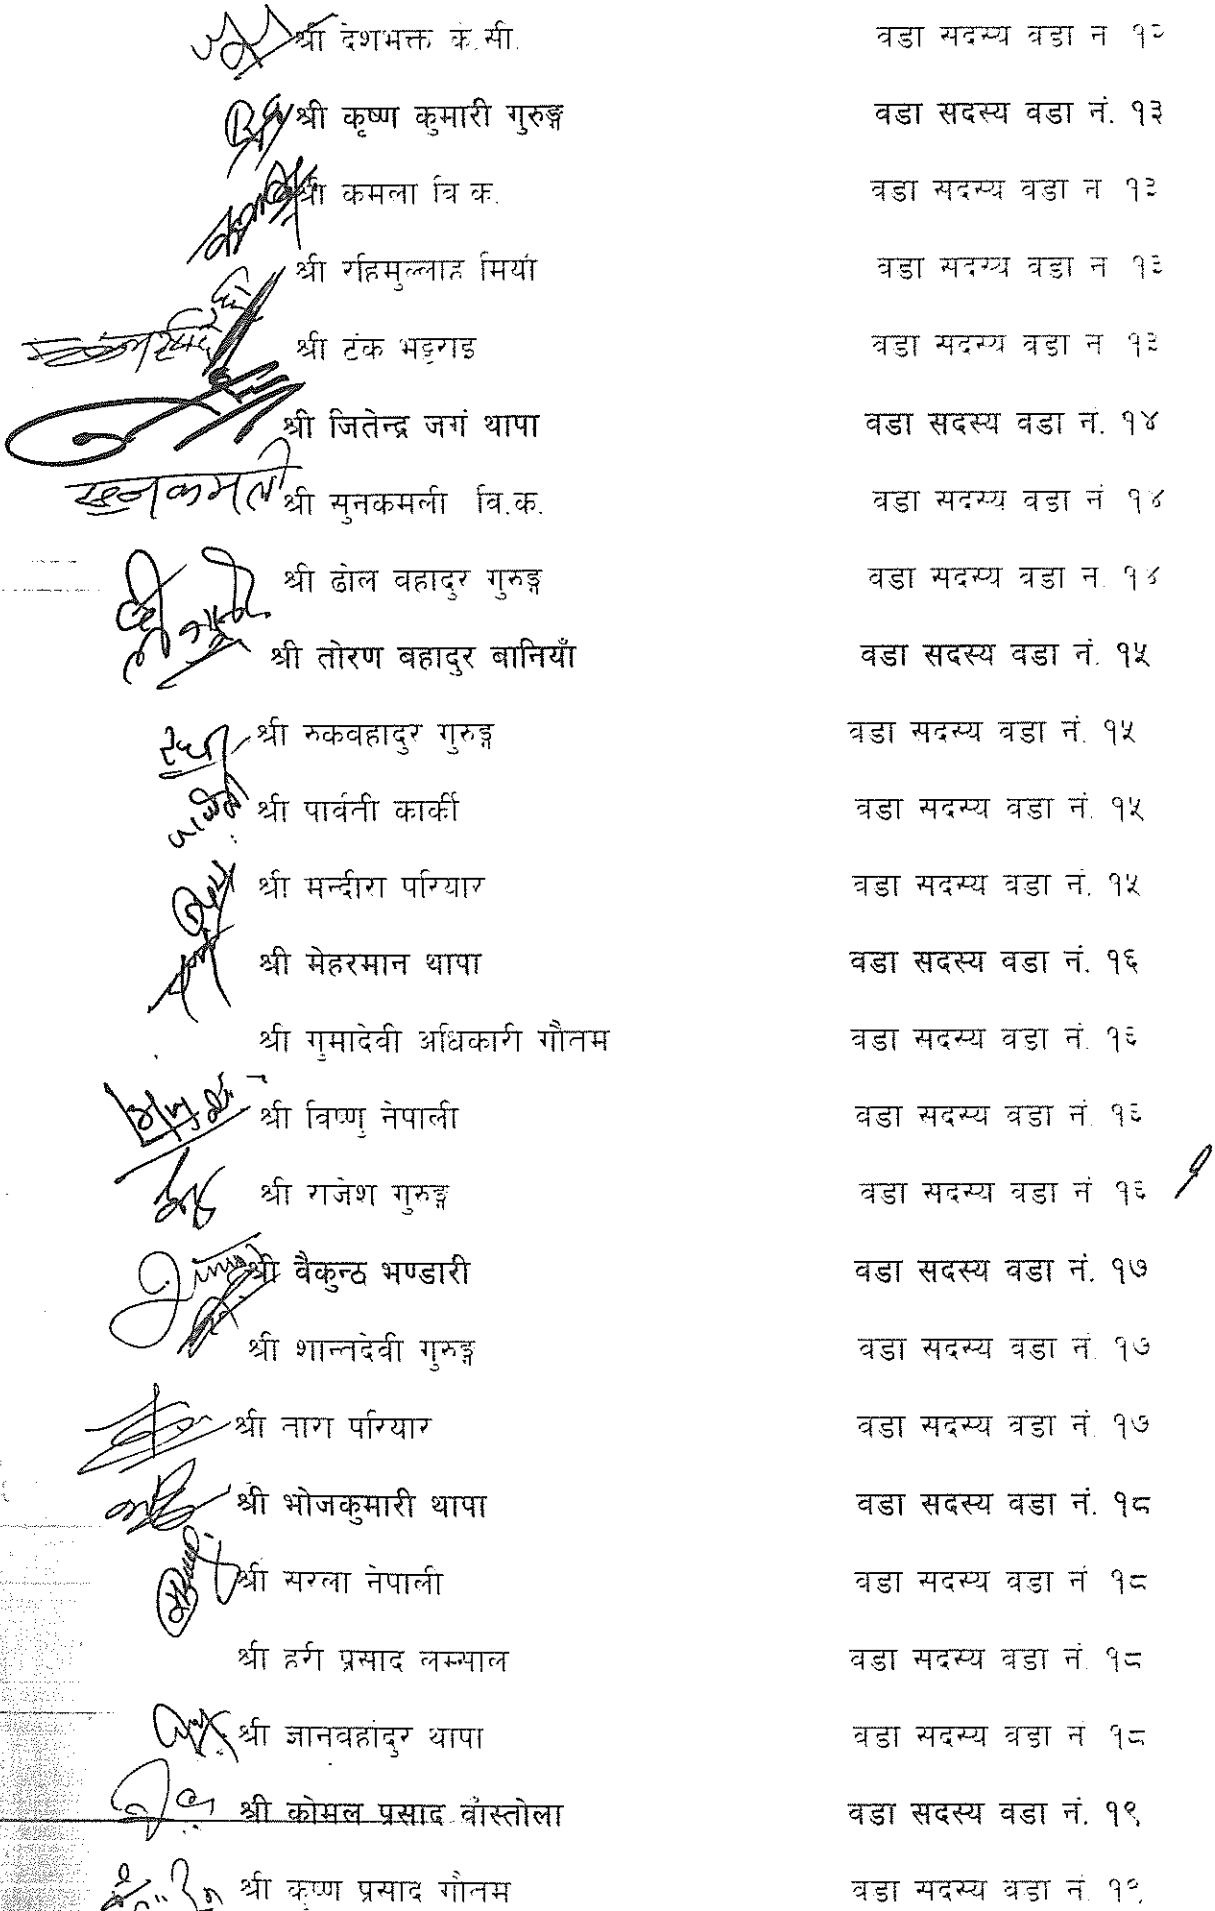 श्री देशभक्त के.सी. वडा सदस्य वडा नं १२
श्री कृष्ण कुमारी गुरुङ्ग वडा सदस्य वडा नं. १३
श्री कमला वि क. वडा सदस्य वडा न १३
श्री रहिमुल्लाह मियाँ वडा सदस्य वडा न १३
श्री टंक भट्टराइ वडा सदस्य वडा न १३
श्री जितेन्द्र जगं थापा वडा सदस्य वडा नं. १४
सुनकमली श्री सुनकमली वि.क. वडा सदस्य वडा नं १४
श्री ढोल वहादुर गुरुङ्ग वडा सदस्य वडा न. १४
श्री तोरण बहादुर बानियाँ वडा सदस्य वडा नं. १५
श्री रुकवहादुर गुरुङ्ग वडा सदस्य वडा नं. १५
श्री पार्वती कार्की वडा सदस्य वडा नं. १५
श्री मन्दीरा परियार वडा सदस्य वडा नं. १५
श्री मेहरमान थापा वडा सदस्य वडा नं. १६
श्री गुमादेवी अधिकारी गौतम वडा सदस्य वडा नं. १६
श्री विष्णु नेपाली वडा सदस्य वडा नं. १६
श्री राजेश गुरुङ्ग वडा सदस्य वडा नं १६
श्री वैकुन्ठ भण्डारी वडा सदस्य वडा नं. १७
श्री शान्तदेवी गुरुङ्ग वडा सदस्य वडा नं. १७
श्री तारा परियार वडा सदस्य वडा नं. १७
श्री भोजकुमारी थापा वडा सदस्य वडा नं. १८
श्री सरला नेपाली वडा सदस्य वडा नं १८
श्री हरी प्रसाद लम्साल वडा सदस्य वडा नं. १८
श्री ज्ञानवहादुर थापा वडा सदस्य वडा नं १८
श्री कोमल प्रसाद वाँस्तोला वडा सदस्य वडा नं. १९
श्री कृष्ण प्रसाद गौतम वडा सदस्य वडा नं. १९